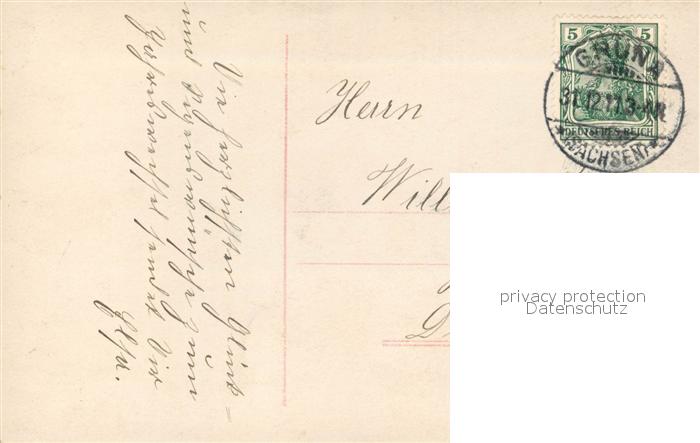 Die herzlichsten Glück-
und
zum
Jahreswechsel sendet Dir
Elsa.
Herrn
Will
D
5 5
DEUTSCHES REICH
GRUNA
31.12.11.3-4N.
(SACHSEN)
privacy protection
Datenschutz